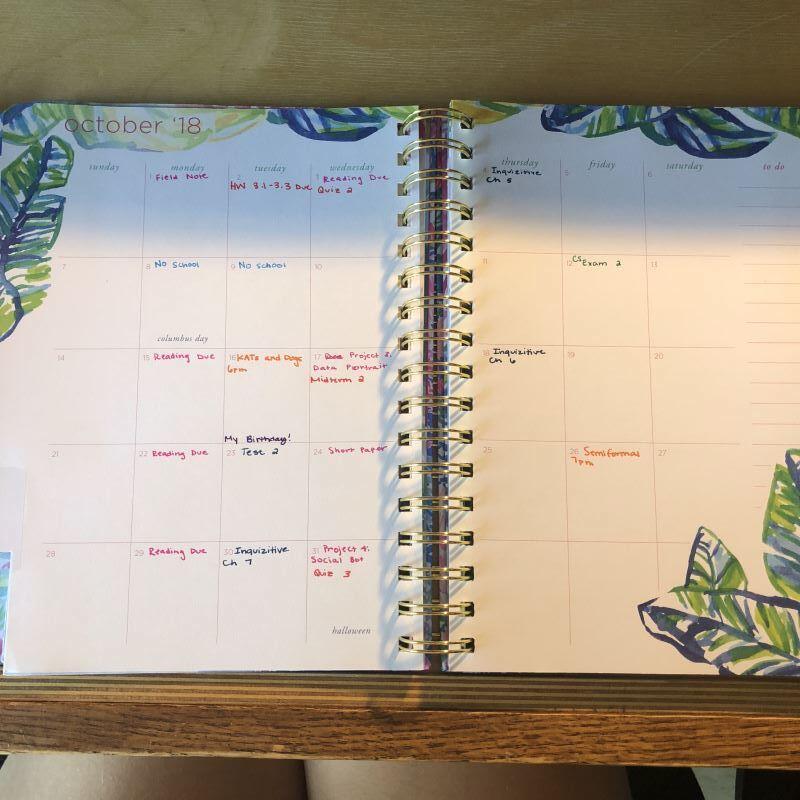 october '18
sunday monday tuesday wednesday thursday friday saturday to do
1 Field Note
2
HW 3.1-3.3 Due
3 Reading Due
Quiz 2
4 Inquizitive
Ch 5
5
6
7
8 No School
columbus day
9 No School
10
11
12 CS Exam 2
13
14
15 Reading Due
16 KATs and Dogs
6pm
17 Project 3:
Data Portrait
Midterm 2
18 Inquizitive
Ch 6
19
20
21
22 Reading Due
My Birthday!
23 Test 2
24 Short Paper
25
26 Semiformal
7pm
27
28
29 Reading Due
30 Inquizitive
Ch 7
31 Project 4:
Social Bot
Quiz 3
halloween